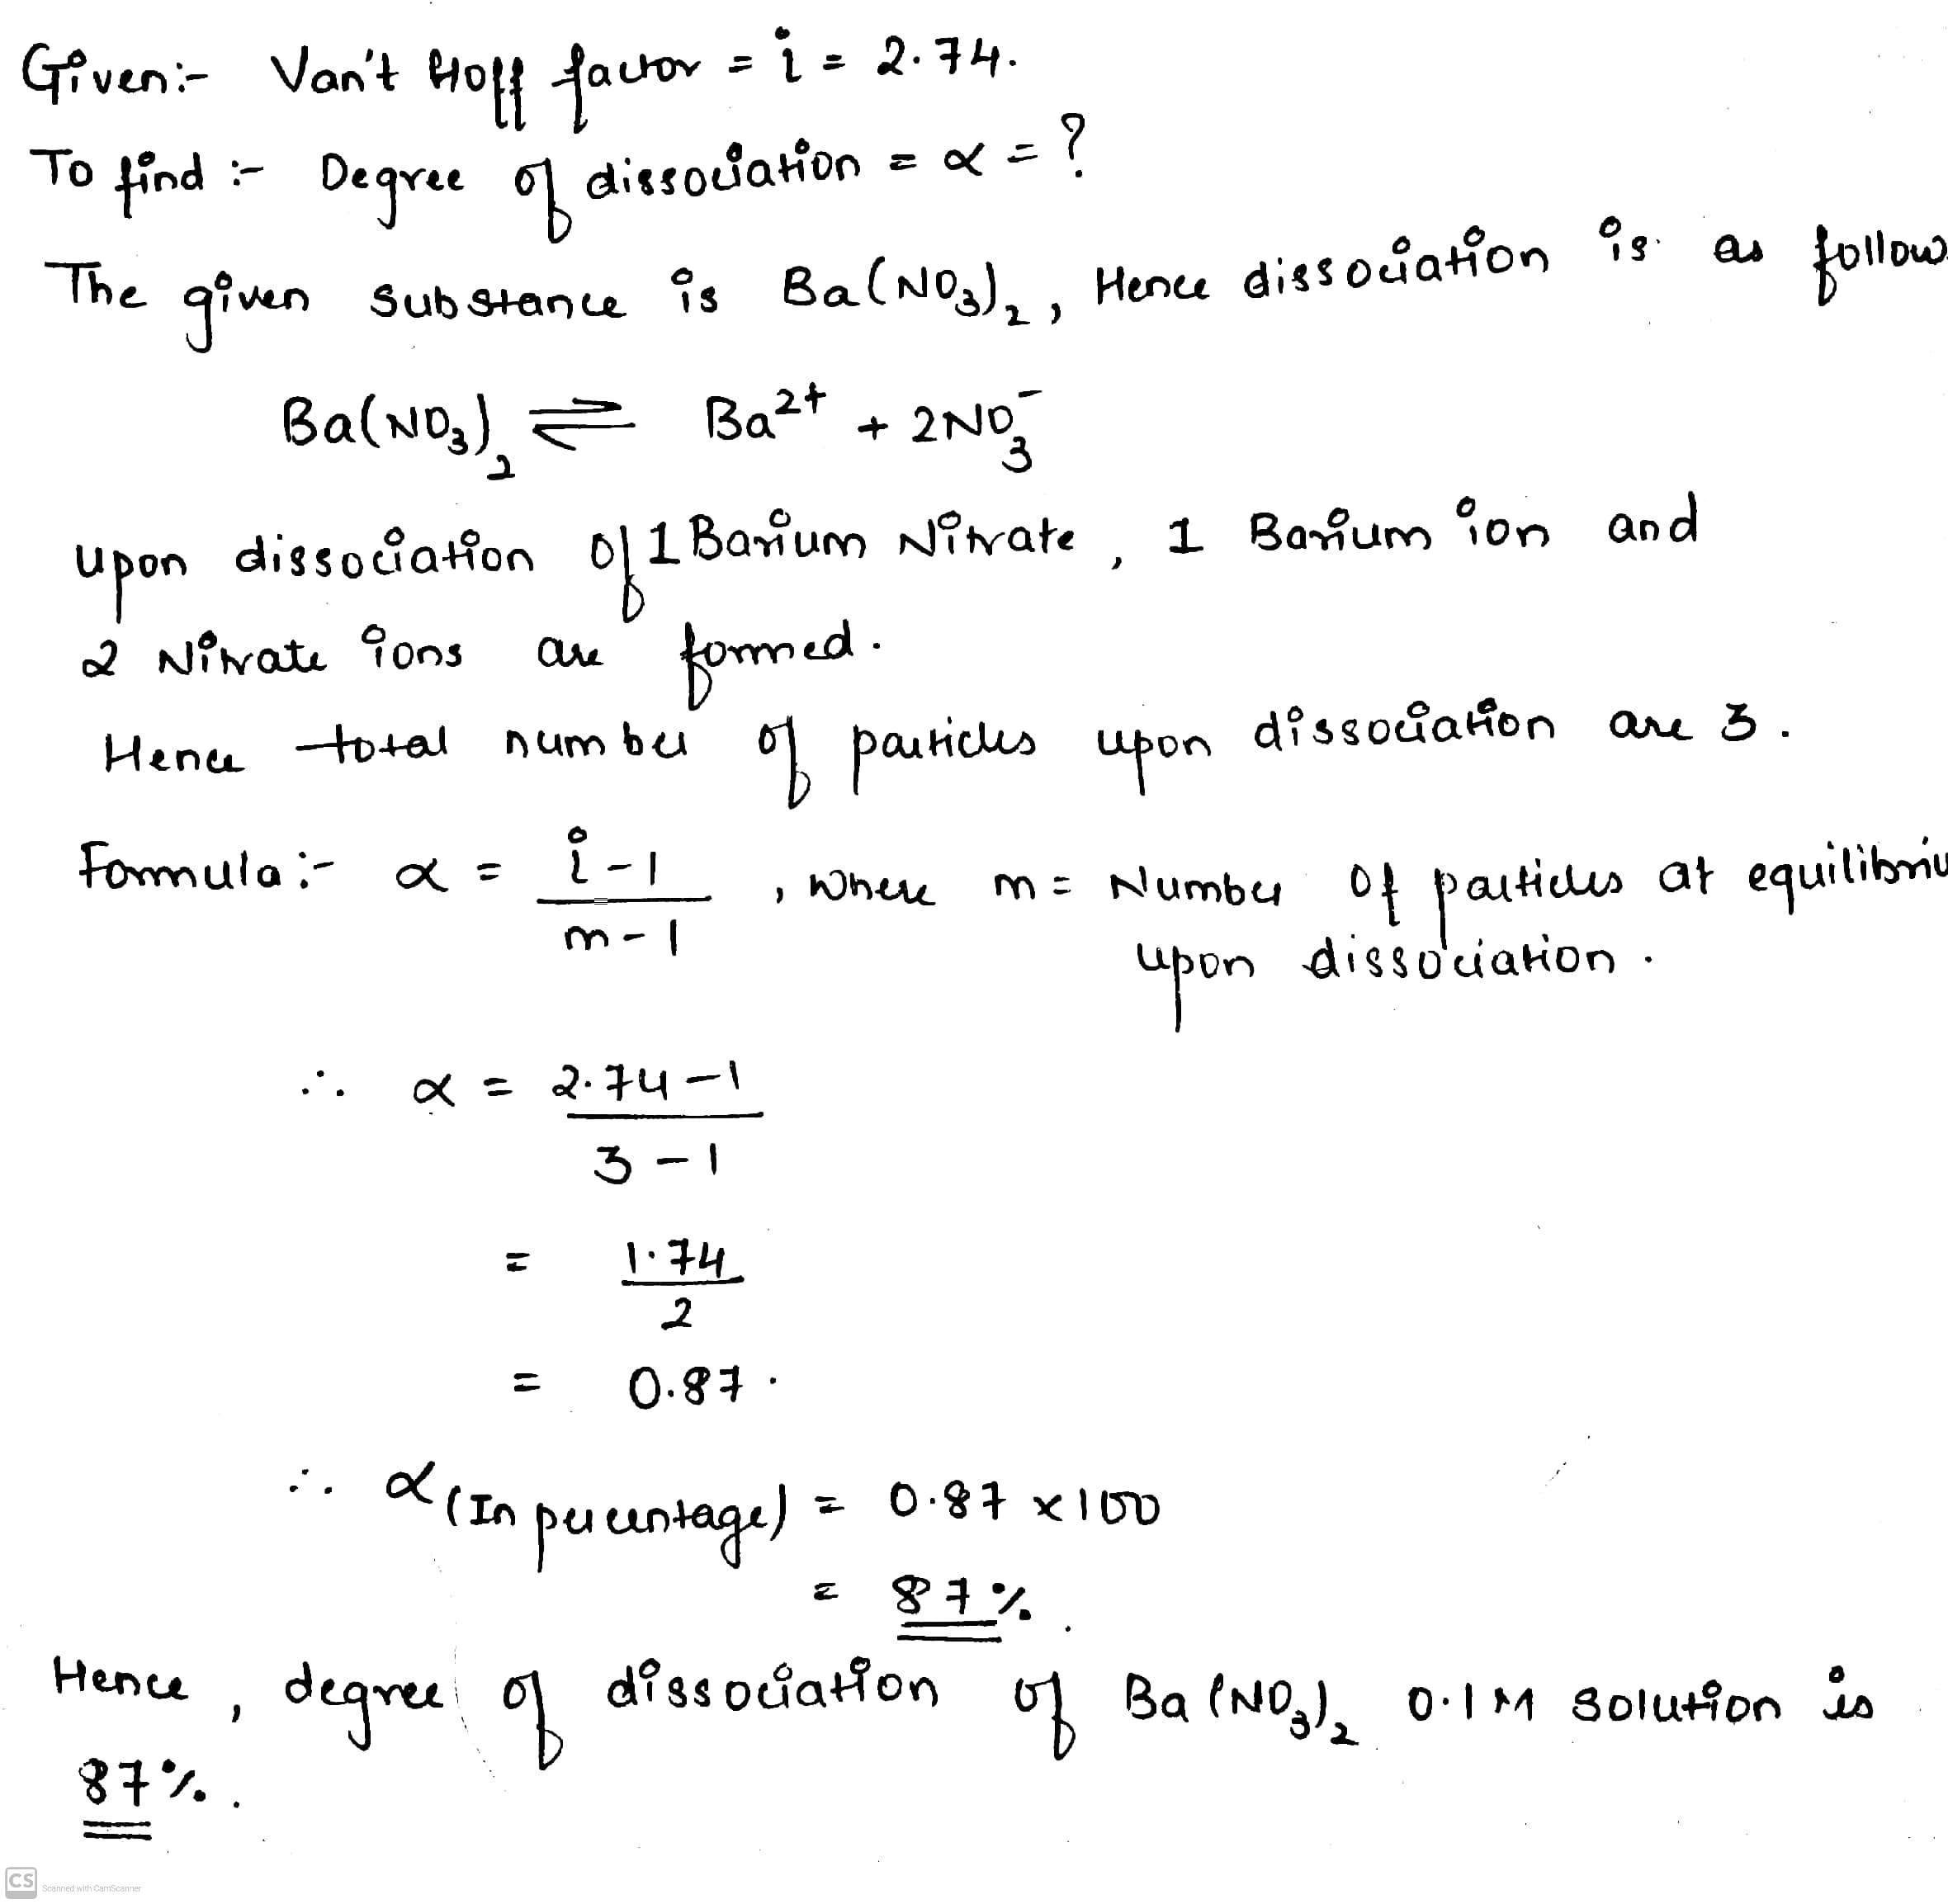 Given:- Van't Hoff factor = i = 2.74.
To find :- Degree of dissociation = α = ?
The given substance is Ba(NO₃)₂, Hence dissociation is as follow
Ba(NO₃)₂ ⇌ Ba²⁺ + 2NO₃⁻
Upon dissociation of 1 Barium Nitrate, 1 Barium ion and
2 Nitrate ions are formed.
Hence total number of particles upon dissociation are 3.
Formula:- α = (i-1)/(m-1), where m = Number of particles at equilibriu
upon dissociation.
∴ α = (2.74-1)/(3-1)
= 1.74/2
= 0.87.
∴ α (In percentage) = 0.87 x 100
= 87%.
Hence, degree of dissociation of Ba(NO₃)₂ 0.1M solution is
87%.
CS Scanned with CamScanner